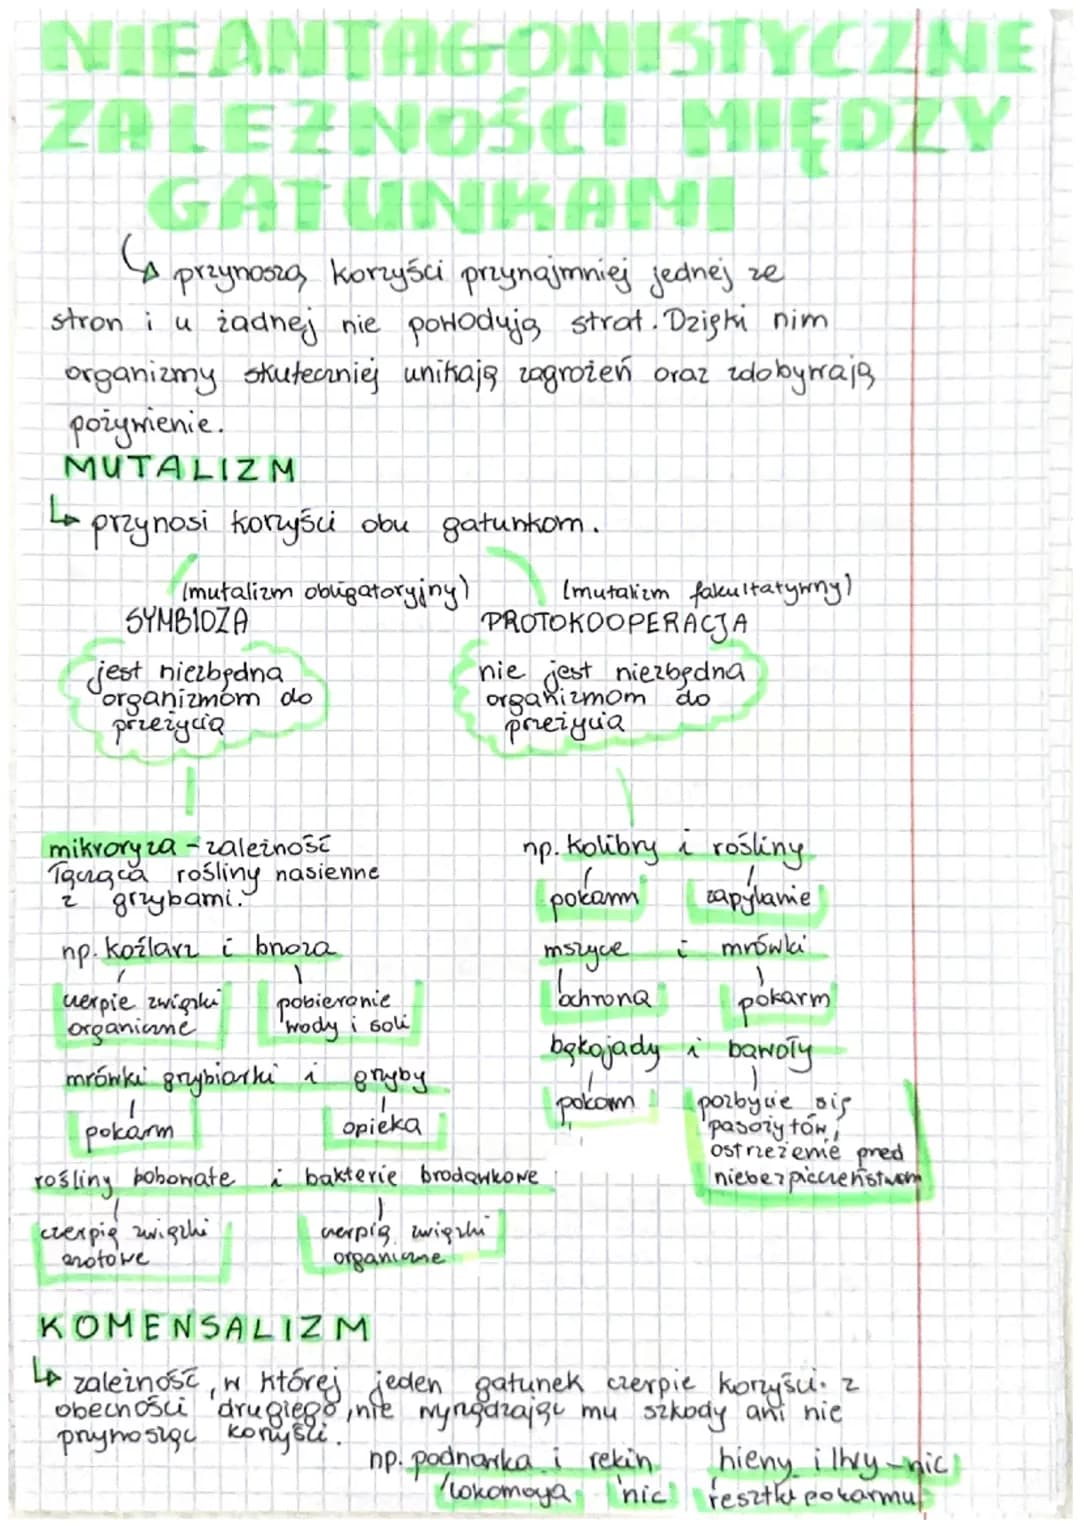 NIEANTAGONISTYCZNE
ZALEŻNOŚCI MIĘDZY
GATUNKAMI
przynoszą korzyści przynajmniej jednej ze
stron i u żadnej nie powodują strat. Dzięki nim
organizmy skuteczniej unikają zagrożeń oraz zdobywają
pożywienie.
MUTALIZM
przynosi korzyści obu gatunkom.
(mutalizm obligatoryjny)
SYMBIOZA
jest niezbędna
organizmom do
przeżycia
(mutalizm fakultatywny)
PROTOKOOPERACJA
nie jest niezbędna
organizmom do
przeżycia
mikroryza - zależność
łącząca rośliny nasienne
z grzybami.
np. koźlarz i brzoza
czerpie związki
organiczne
pobieranie
wody i soli
mrówki grzybiarki i grzyby
pokarm
opieka
rośliny bobowate i bakterie brodawkowe
czerpią związki
azotowe
czerpią związki
organiczne
np. kolibry i rośliny
pokarm
zapylanie
mszyce i mrówki
ochrona
pokarm
bąkojady i bawoły
pokarm
pozbycie się
pasożytów,
ostrzeżenie pred
niebezpieczeństwem
KOMENSALIZM
zależność, w której jeden gatunek czerpie korzyści z
obecności drugiego, nie wyrządzając mu szkody ani nie
przynosząc korzyści.
np. podnawka i rekin
lokomocja
nic
hieny i lwy - nic
resztki pokarmu